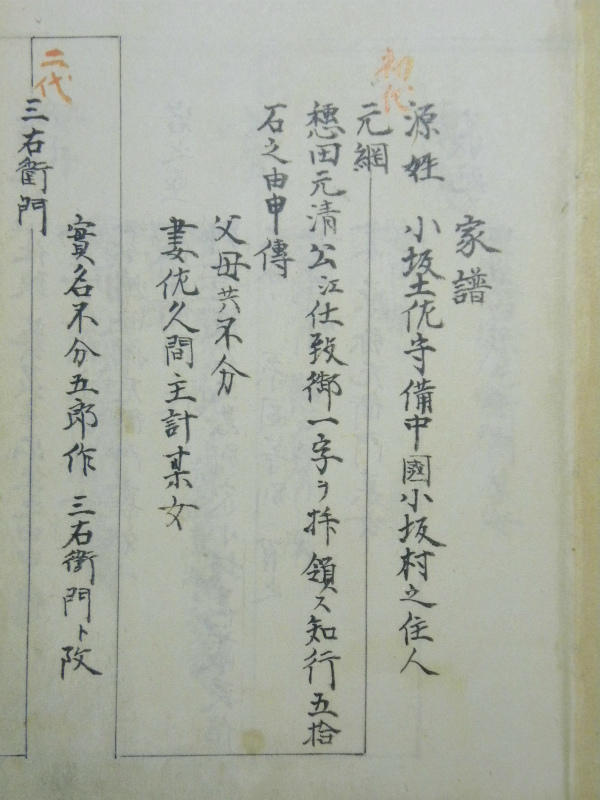 家譜
源姓 小坂土佐守備中國小坂村之住人
初代
元網
穗田元清公江仕致御一字ヲ拝領ス知行五拾
石之由申傳
父母共不分
妻佐久間主計某女
二代
三右衛門
實名不分五郎作 三右衛門ト改